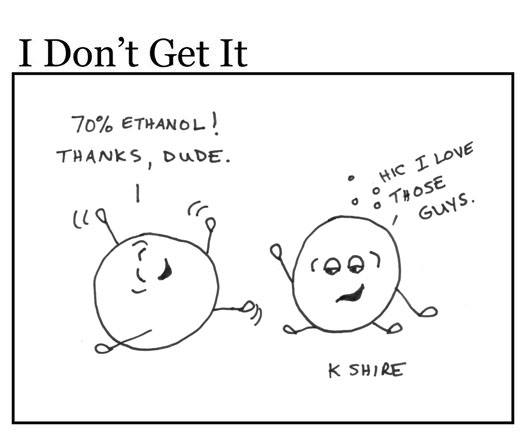 I Don't Get It
70% ETHANOL!
THANKS, DUDE.
HIC I LOVE
THOSE
GUYS.
K SHIRE